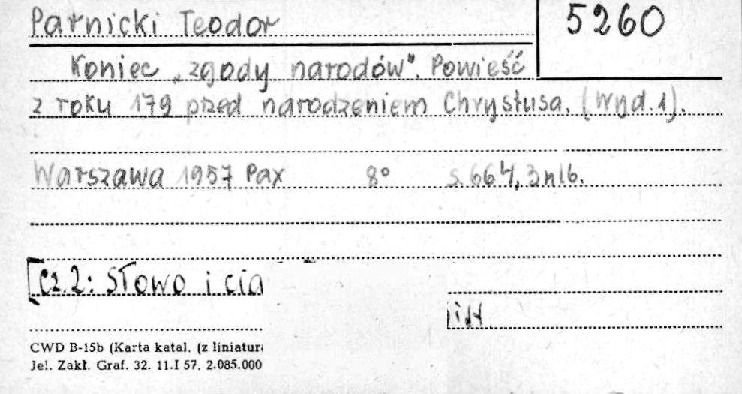 Parnicki Teodor
5260
Koniec „zgody narodów". Powieść
z roku 179 przed narodzeniem Chrystusa. (Wyd. 1).
Warszawa 1957 Pax 8° s. 664, 3 nlb.
[Cz. 2: Słowo i cia
CWD B-15b (Karta katal. (z liniatur
Jel. Zakł. Graf. 32. 11.I 57. 2.085.000